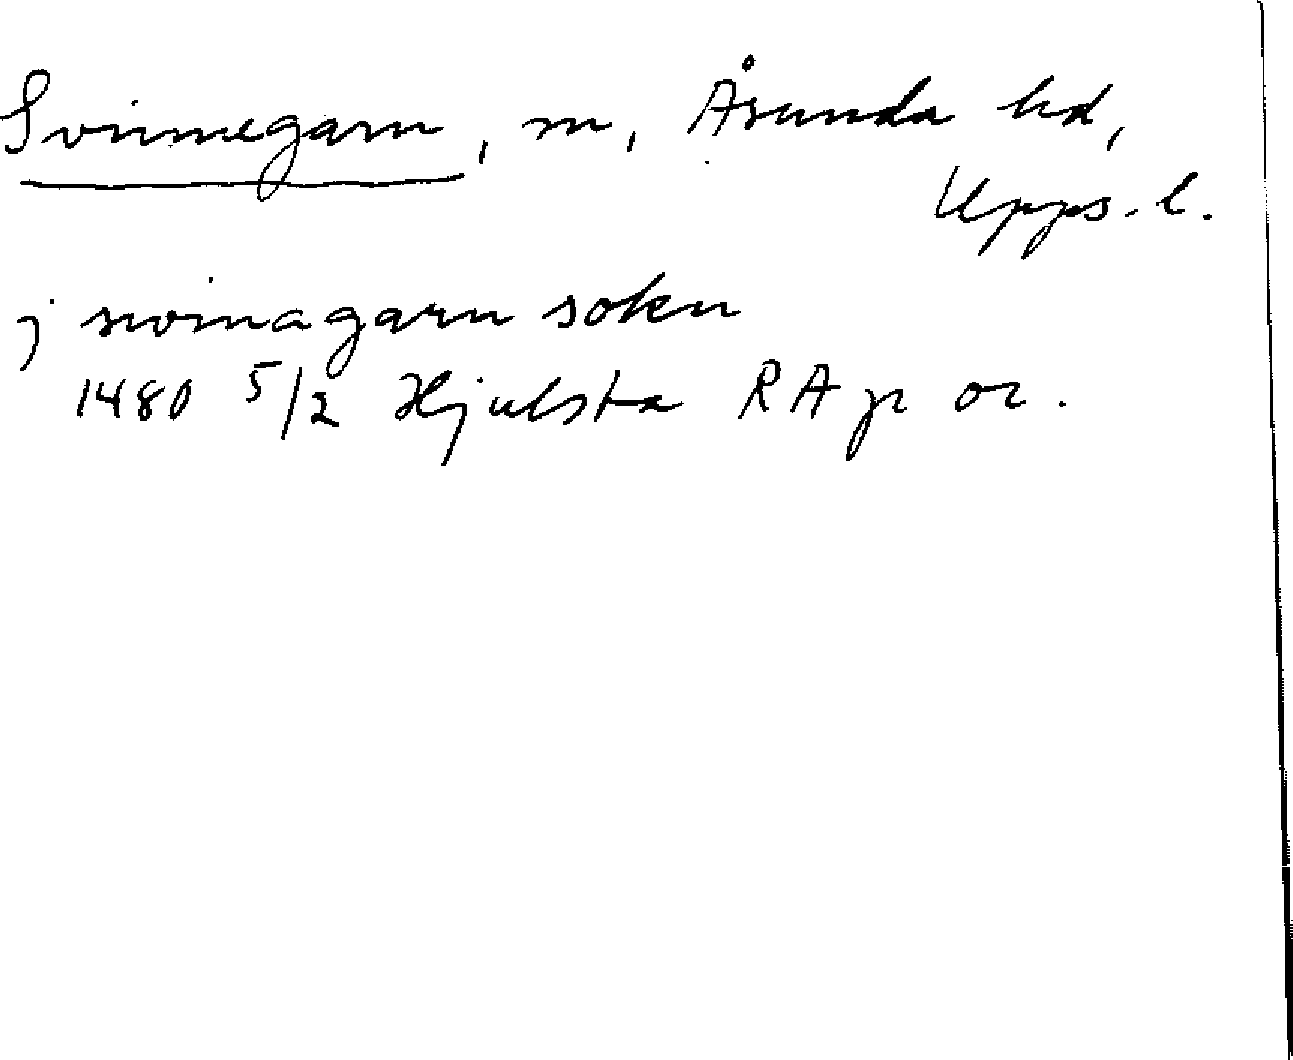 Svinnegarn, sn, Åsunda hd,
Upps. l.
j swinagarn sokn
1480 5/2 Hjulsta RAp or.